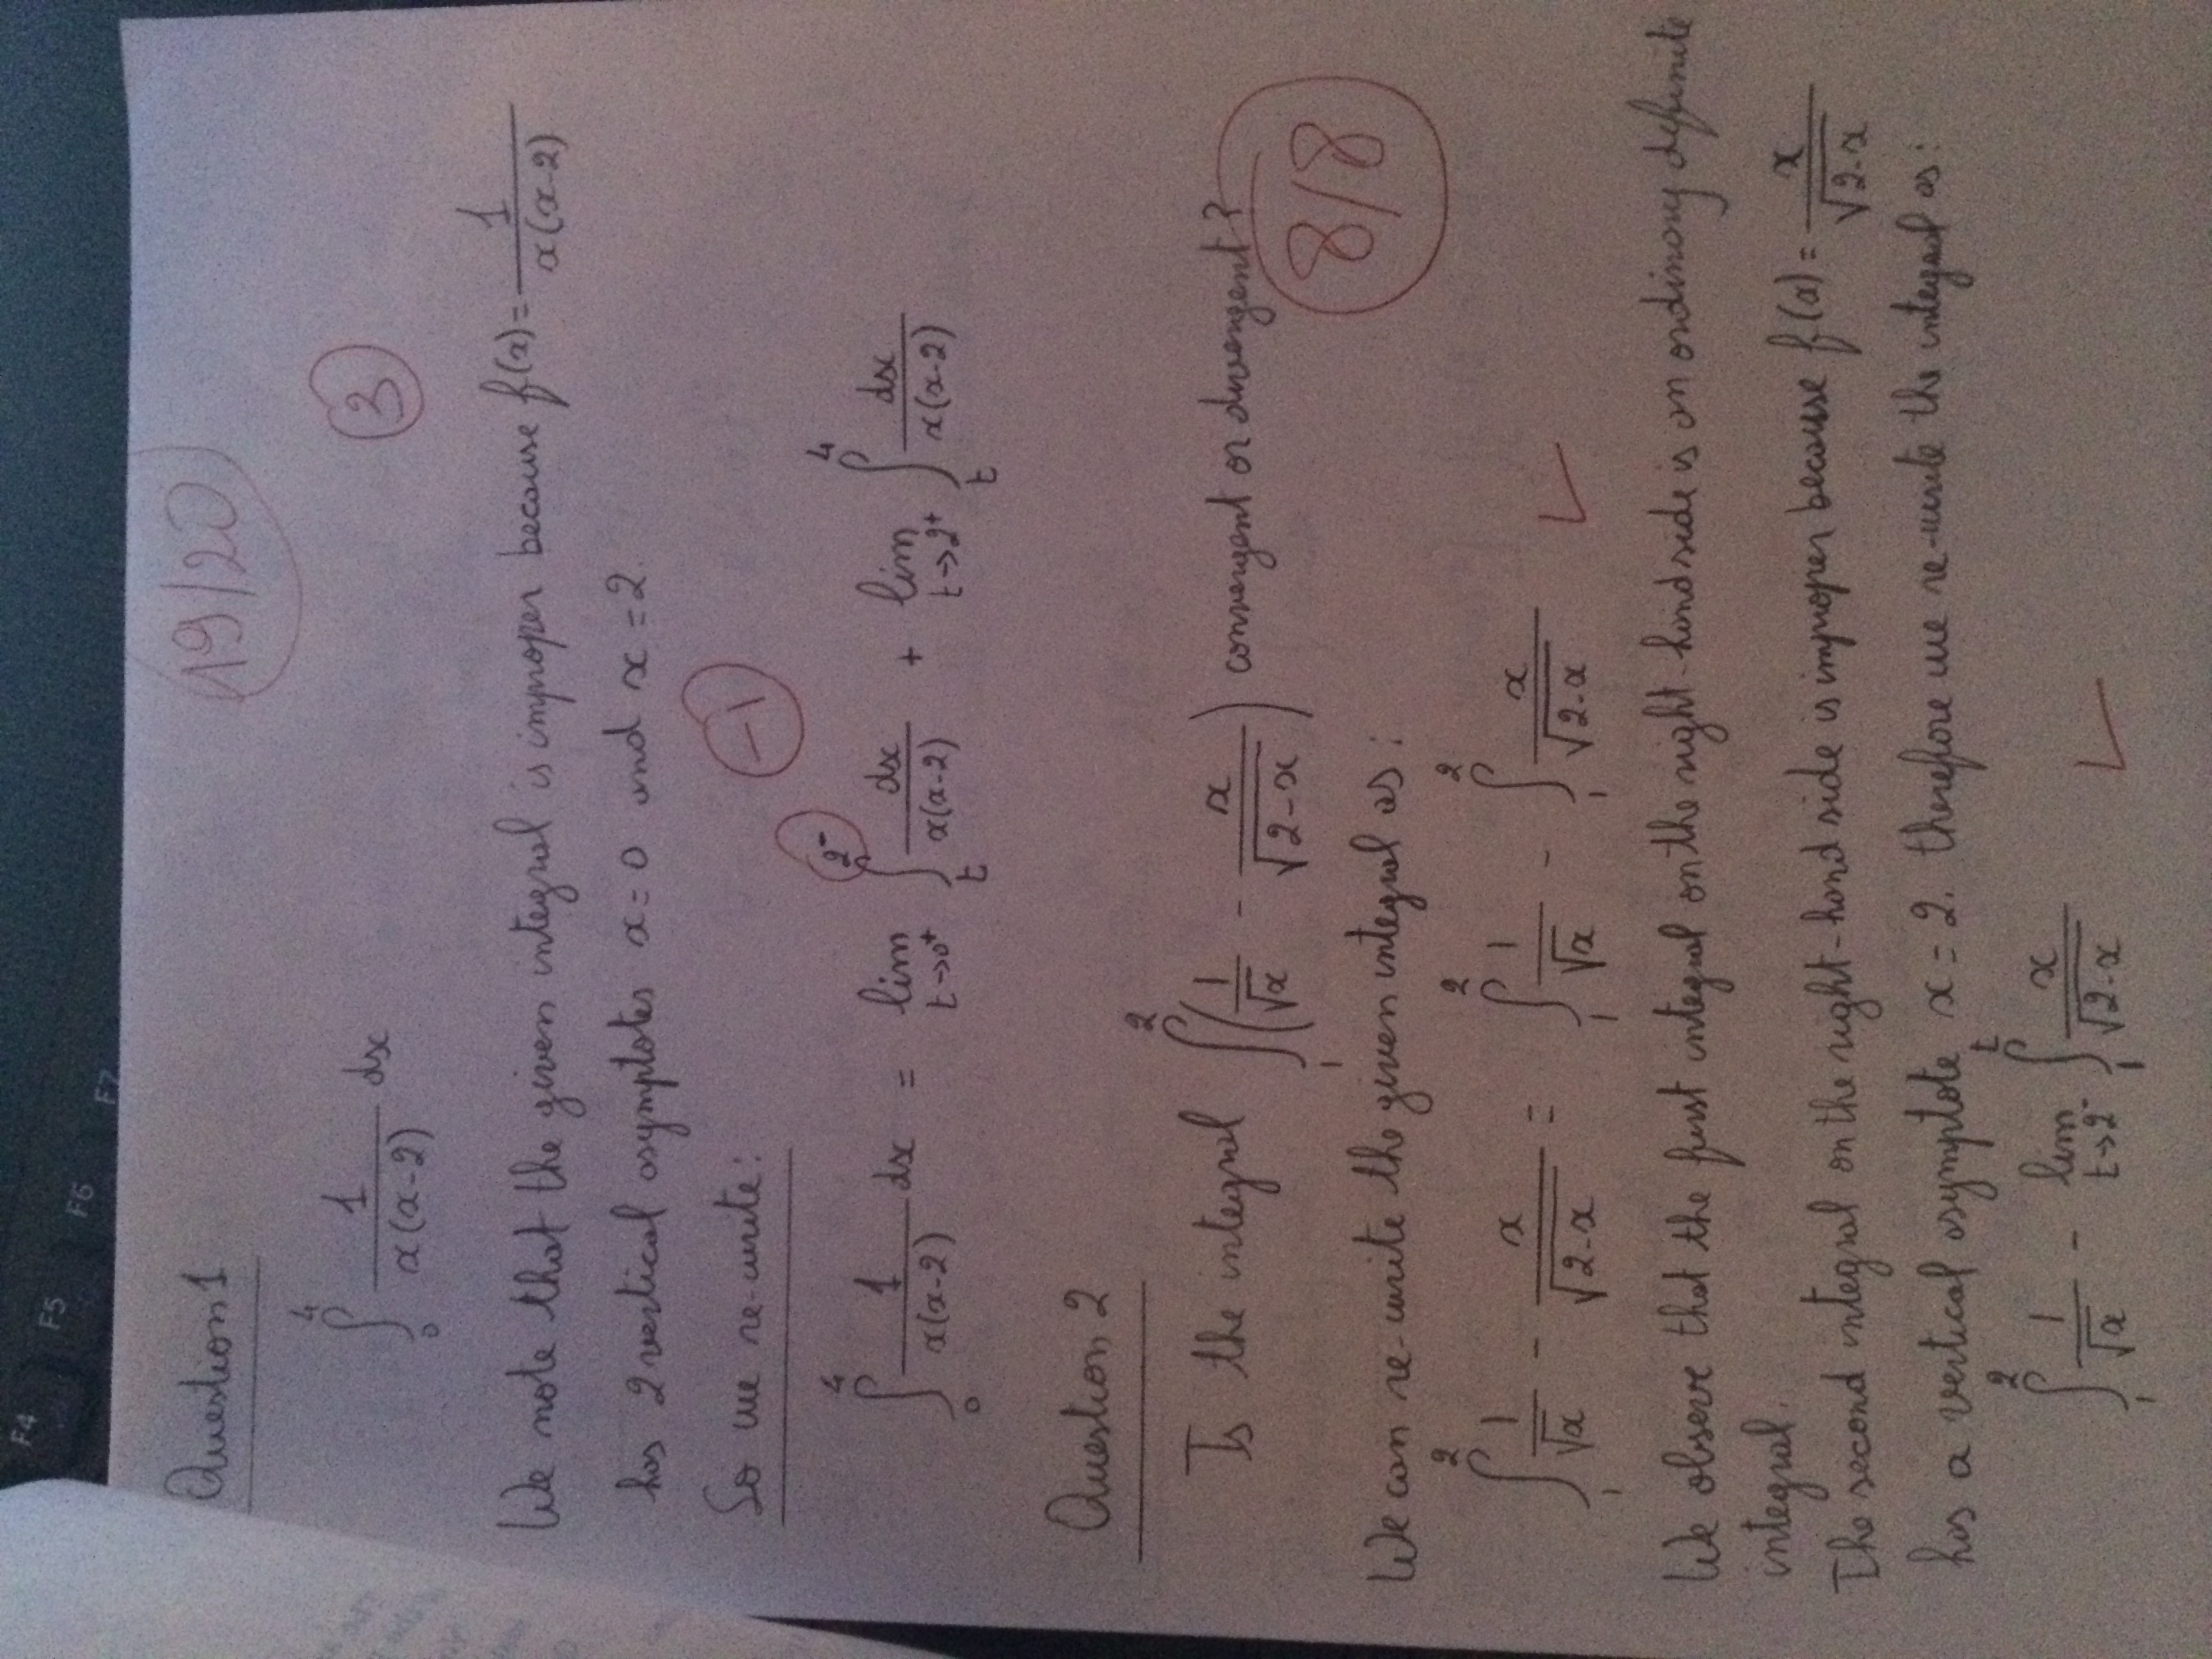 F4 F5 F6 F7
19/20
Question 1
∫₀⁴ 1/(x(x-2)) dx
3
We note that the given integral is improper because f(x) = 1/(x(x-2))
has 2 vertical asymptotes x = 0 and x = 2
So we re-write:
-1
∫₀⁴ 1/(x(x-2)) dx = lim t→0⁺ ∫ₜ^2⁻ dx/(x(x-2)) + lim t→2⁺ ∫ₜ⁴ dx/(x(x-2))
Question 2
Is the integral ∫₁² (1/√x - x/√(2-x)) convergent or divergent?
8/8
We can re-write the given integral as:
∫₁² 1/√x - x/√(2-x) = ∫₁² 1/√x - ∫₁² x/√(2-x)
We observe that the first integral on the right-hand side is an ordinary definite
integral.
The second integral on the right-hand side is improper because f(x) = x/√(2-x)
has a vertical asymptote x = 2. therefore we re-write the integral as:
∫₁² 1/√x - lim t→2⁻ ∫₁ᵗ x/√(2-x)